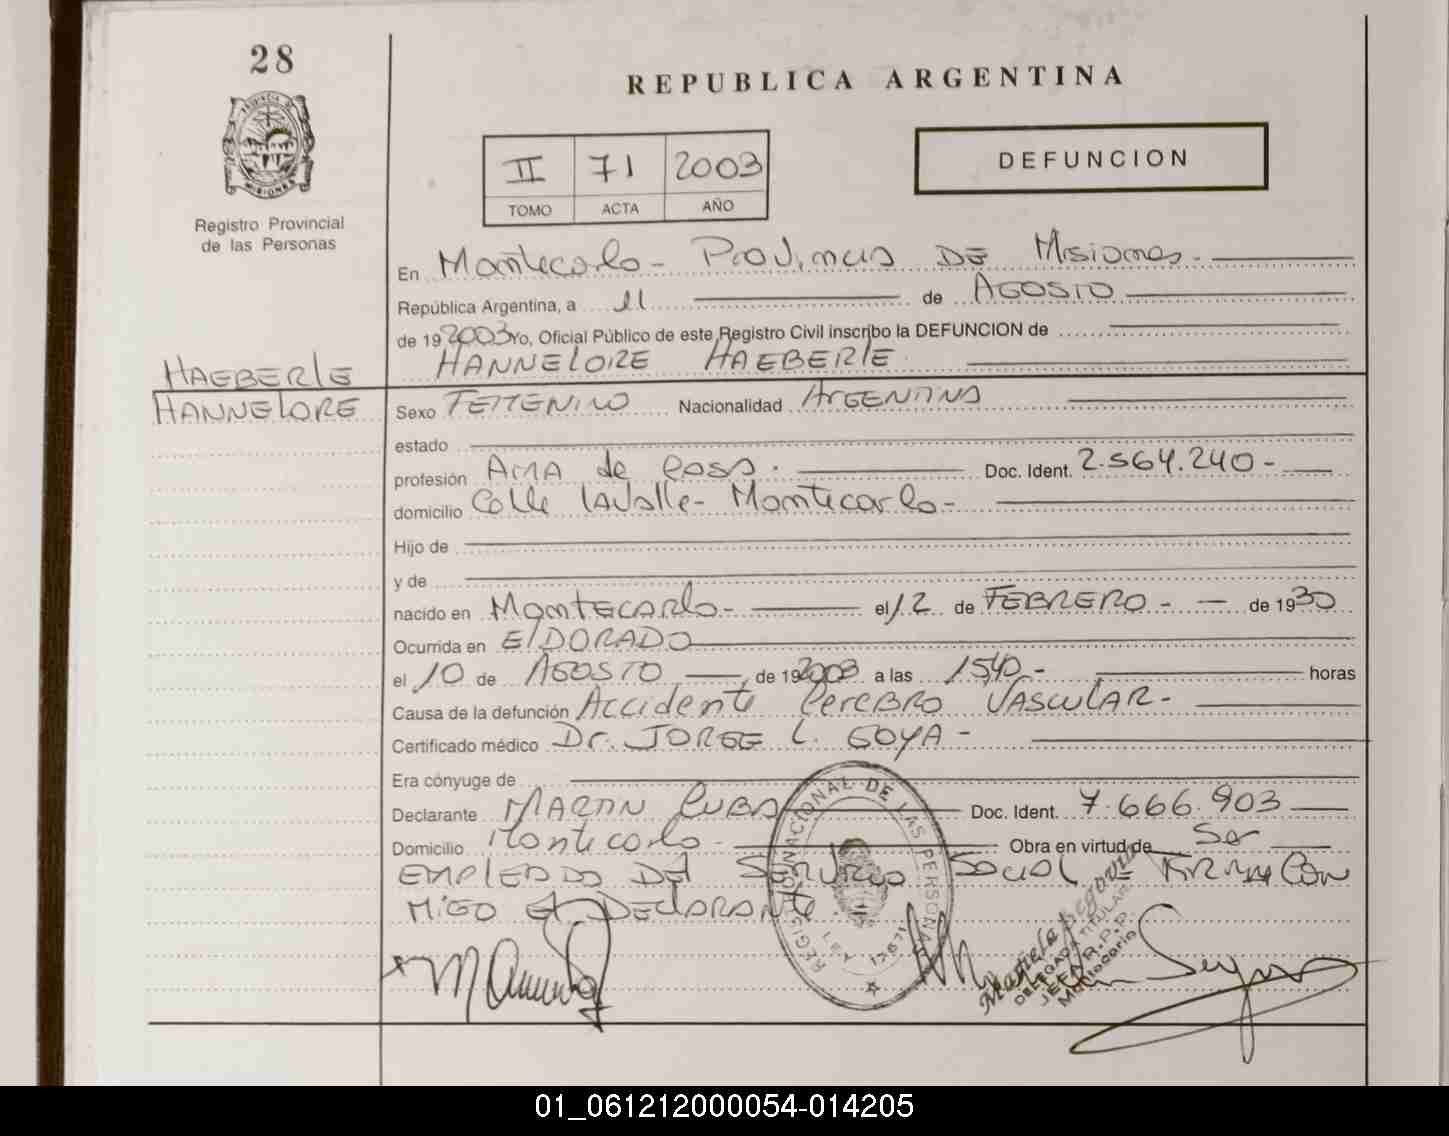 28
REPUBLICA ARGENTINA
II 71 2003
TOMO ACTA AÑO
DEFUNCION
PROVINCIA DE MISIONES
Registro Provincial
de las Personas
En Montecarlo - Provincia DE Misiones -
República Argentina, a 11 de AGOSTO
de 19 2003 Yo, Oficial Público de este Registro Civil inscribo la DEFUNCION de
HANNELORE HAEBERLE
HAEBERLE
HANNELORE
Sexo FEMENINO Nacionalidad ARGENTINA
estado
profesión AMA de casa. Doc. Ident. 2.564.240-
domicilio Calle LAValle - Montecarlo -
Hijo de
y de
nacido en MONTECARLO - el 12 de FEBRERO - - de 1930
Ocurrida en ElDORADO
el 10 de AGOSTO de 19 2003 a las 1540 - horas
Causa de la defunción Accidente CereBRO VASCULAR -
Certificado médico Dr. JORGE L. GOYA -
Era cónyuge de
Declarante MARTIN Doc. Ident. 7.666.903
Domicilio Montecarlo - Obra en virtud de Ser
EMPLEADO DEL SERVICIO SOCIAL - FIRMA CON
MIGO El DEClARANTE.
REGISTRO NACIONAL DE LAS PERSONAS
LEY 17671
Mariela Segovia
DELEGADA TITULAR
JEFE R.P.P.
Montecarlo
01_061212000054-014205